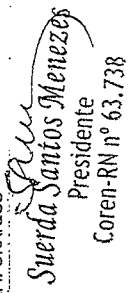 Suerda Santos Menezes
Presidente
Coren-RN nº 63.738